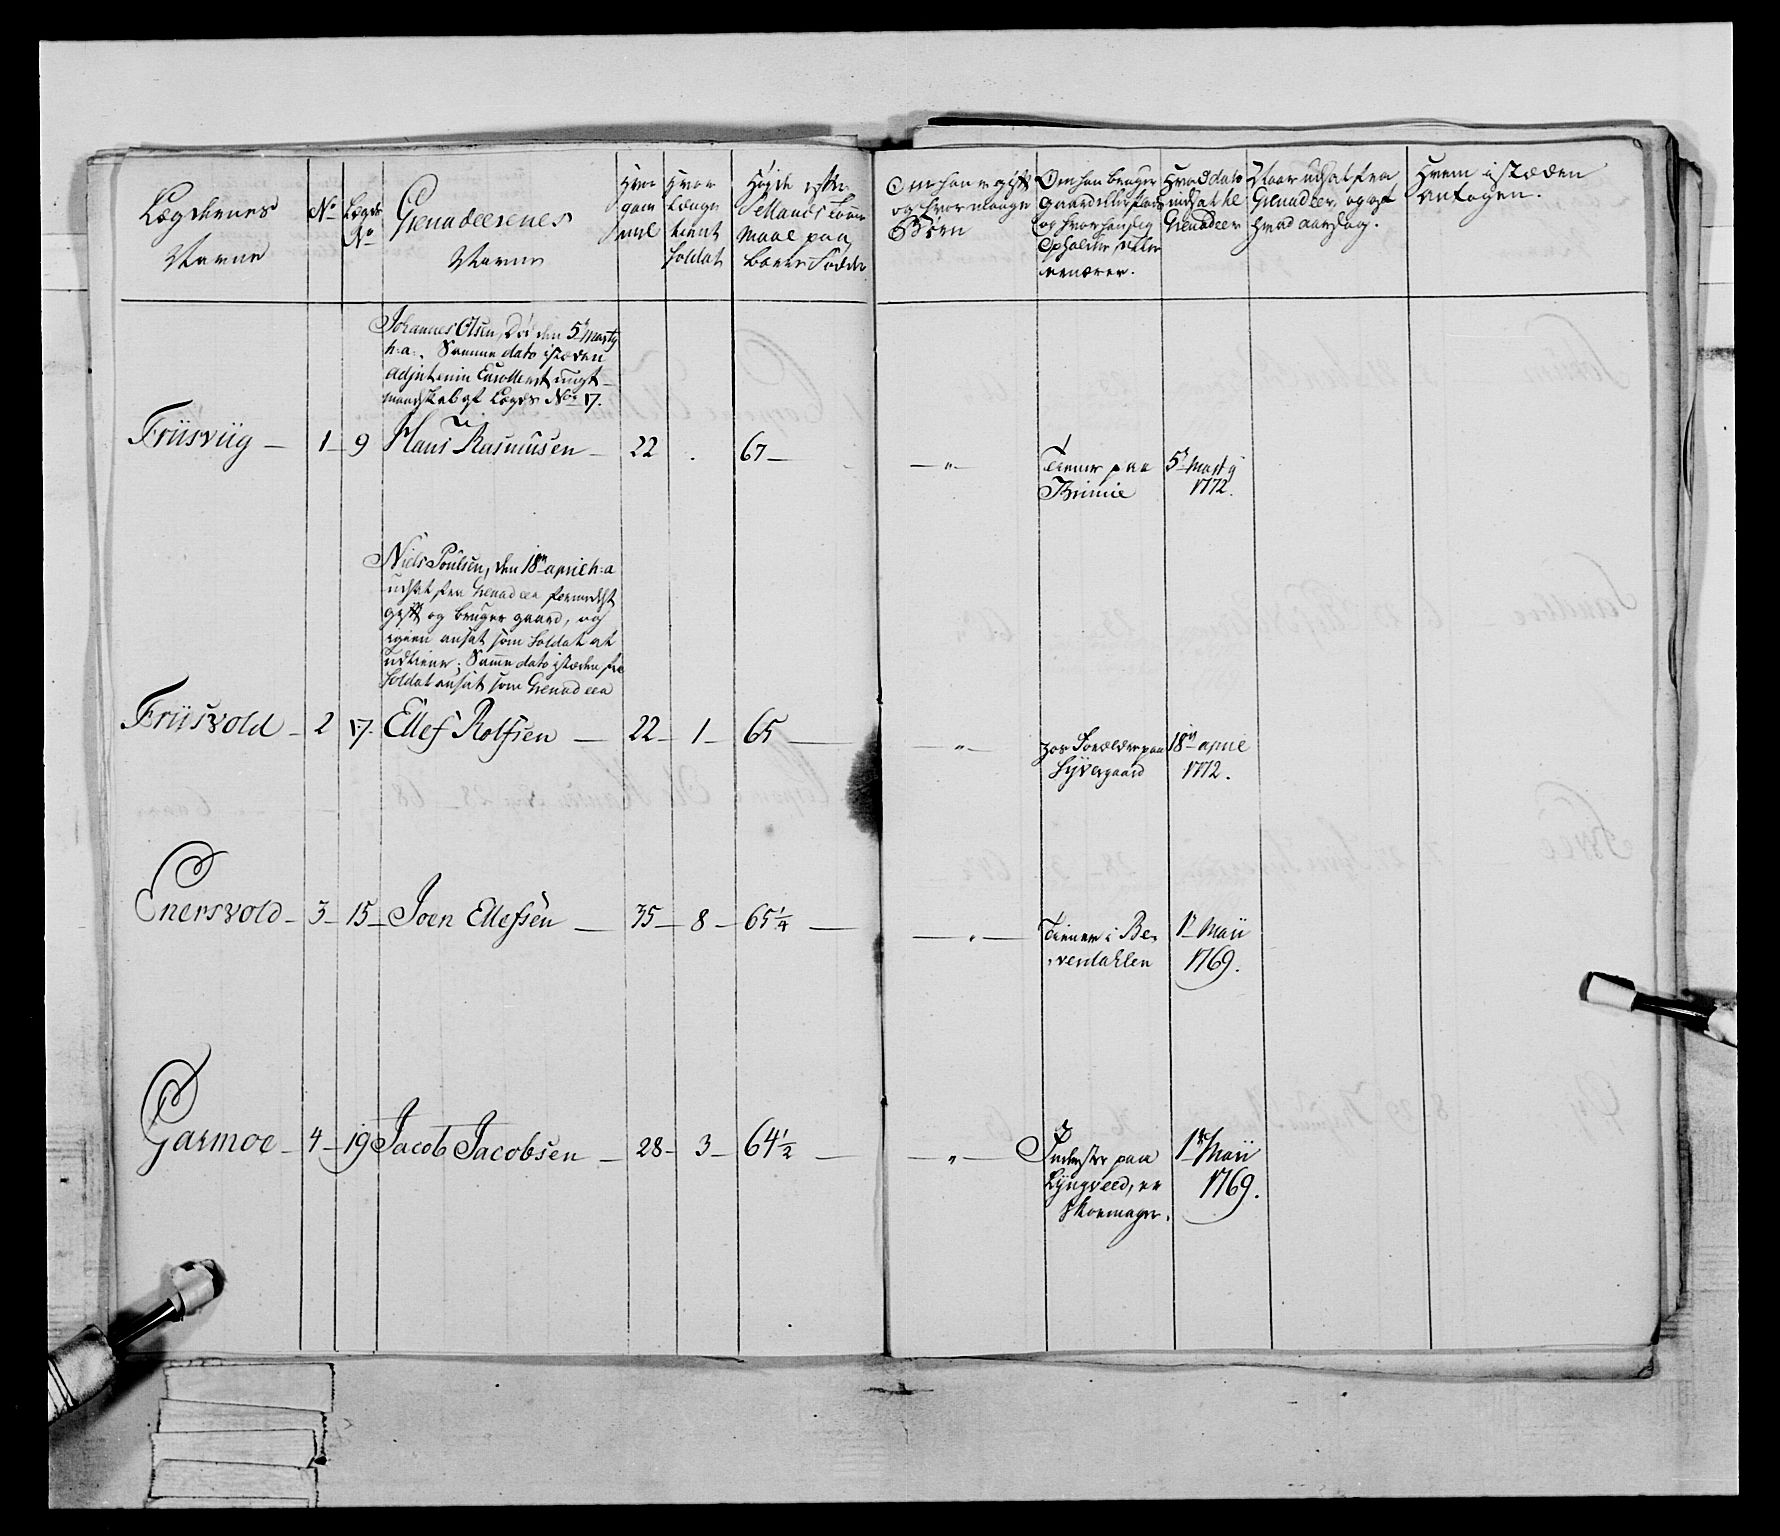 Lægdernes
Navne
No
Lægds
No
Grenadeerenes
Navne
Hvor
gam
mel
Hvor
længe
tient
Soldat
Høyde efter
Sellands Tomme
Maal paa
bare Fødder
Om han er gift
og hvor mange
Børn
Om han bruger
gaard eller plads
og hvor han sig
opholder, eller
ernærer.
Hvad dato
indsat til
Grenadeer
Naar udsat fra
Grenadeer, og af
hvad aarsag.
Hvem i stæden
antagen.
Johannes Olsen, Død den 5t Marty
h:a:. Samme dato istæden
mandskab af Lægds No 17.
Friisviig — 1 — 9 Hans Rasmusen — 22 . 67 — — " —
Tiener paa
Brimie
5t Marty
1772.
Niels Poulsen, den 18de april h:a
udsat fra Grenadeer formedelst
gift og bruger gaard, og
igien ansat som Soldat at
udtiene; Samme dato istæden fra
Soldat ansat som Grenadeer
Friisvold — 2 17. Ellef Rolfsen — 22 — 1 — 65 — — " —
hos Forældre paa
Syvergaard
18de april
1772.
Enersvold — 3 — 15 — Joen Ellefsen — 35 — 8 — 65 1/4 — — " —
Tiener i Be-
verdahlen
1t Maii
1769.
Garmoe — 4 — 19 Jacob Jacobsen — 28 — 3 — 64 1/2 — — " —
Inderster paa
Lyngveed, er
Skoemager.
1t Maii
1769.